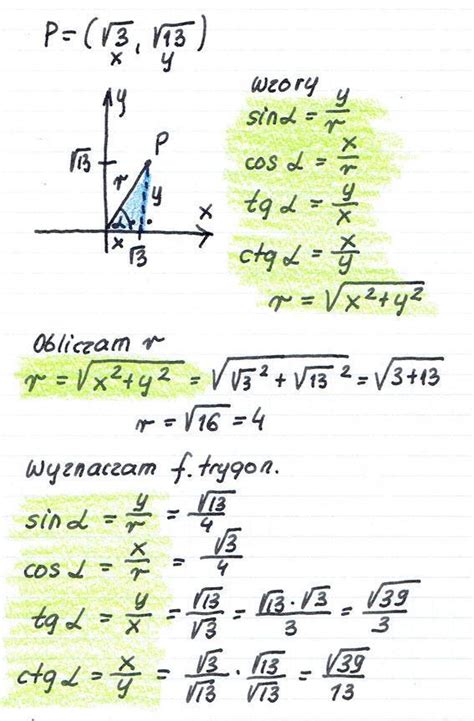 P = (√3, √13)
x y
y
P
√13
r
y
α
x
√3
x
wzory
sin α = y/r
cos α = x/r
tg α = y/x
ctg α = x/y
r = √(x²+y²)
Obliczam r
r = √(x²+y²) = √(√3² + √13²) = √(3+13)
r = √16 = 4
Wyznaczam f. trygon.
sin α = y/r = √13/4
cos α = x/r = √3/4
tg α = y/x = √13/√3 = √13·√3/3 = √39/3
ctg α = x/y = √3/√13 · √13/√13 = √39/13